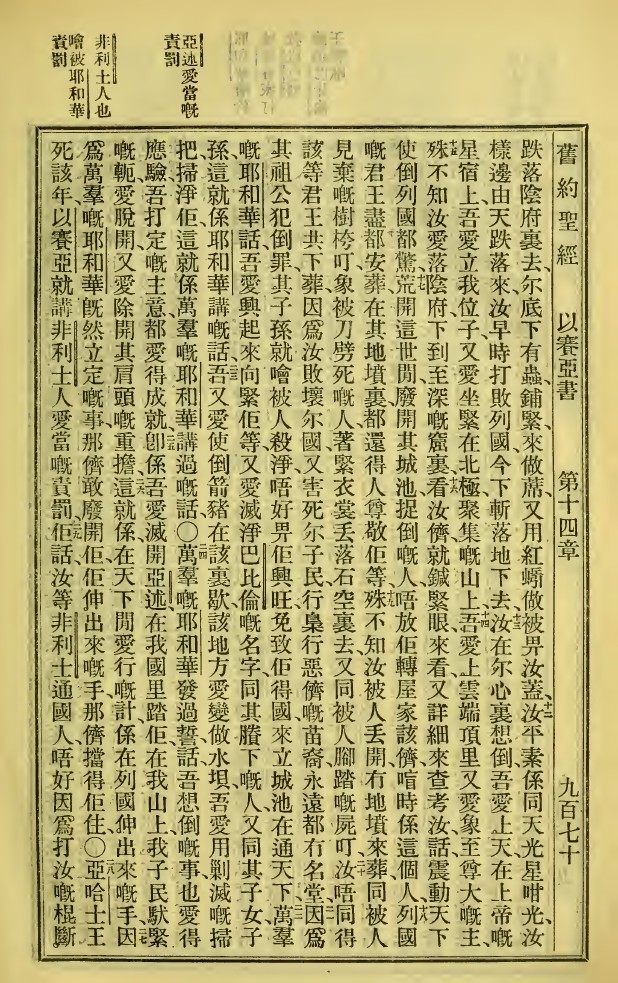 舊約聖經 以賽亞書 第十四章 九百七十
跌落陰府裏去、尔底下有蟲鋪緊來做蓆、又用紅蟮做被畀汝蓋、十二汝平素係同天光星咁光、汝
樣邊由天跌落來、汝早時打敗列國、今下斬落地下去、十三汝在尔心裏想倒、吾愛上天、在上帝嘅
星宿上、吾愛立我位子、又愛坐緊在北極聚集嘅山上、十四吾愛上雲端頂里、又愛象至尊大嘅主、
十五殊不知汝愛落陰府下、到至深嘅窟裏、十六看汝儕就鋮緊眼來看、又詳細來查考汝、話震動天下、
使倒列國都驚、十七荒開這世間、廢開其城池、捉倒嘅人唔放佢轉屋家、該儕喑時係這個人、十八列國
嘅君王盡都安葬、在其地墳裏、都還得人尊敬佢等、十九殊不知汝被人丟開、冇地墳來葬、同被人
見棄嘅樹桍叮、象被刀劈死嘅人、著緊衣裳丢落石空裏去、又同被人腳踏嘅屍叮、二十汝唔同得
該等君王共下葬、因爲汝敗壞尔國、又害死尔子民、行梟行惡儕嘅苗裔、永遠都冇名堂、二一因爲
其祖公犯倒罪、其子孫就噲被人殺淨、唔好畀佢興旺、免致佢得國來立城池在通天下、二二萬羣
嘅耶和華話、吾愛興起來向緊佢等、又愛滅淨巴比倫嘅名字、同其賸下嘅人、又同其子女子
孫、這就係耶和華講嘅話、二三吾又愛使倒箭豬在該裏歇、該地方愛變做水垻、吾愛用剿滅嘅掃
把掃淨佢、這就係萬羣嘅耶和華講過嘅話、○二四萬羣嘅耶和華發過誓話、吾想倒嘅事也愛得
應驗、吾打定嘅主意都愛得成就、二五卽係吾愛滅開亞述在我國里、踏佢在我山上、我子民馱緊
嘅軛愛脫開、又愛除開其肩頭嘅重擔、二六這就係在天下間愛行嘅計、係在列國伸出來嘅手、二七因
爲萬羣嘅耶和華旣然立定嘅事、那儕敢廢開佢、佢伸出來嘅手、那儕擋得佢住、○二八亞哈士王
死該年、以賽亞就講非利士人愛當嘅責罰、二九佢話、汝等非利士通國人、唔好因爲打汝嘅棍斷
亞述愛當嘅
責罰
非利士人也
噲被耶和華
責罰